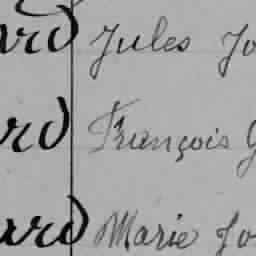 ard Jules Jo
rd François G
ard Marie Jo